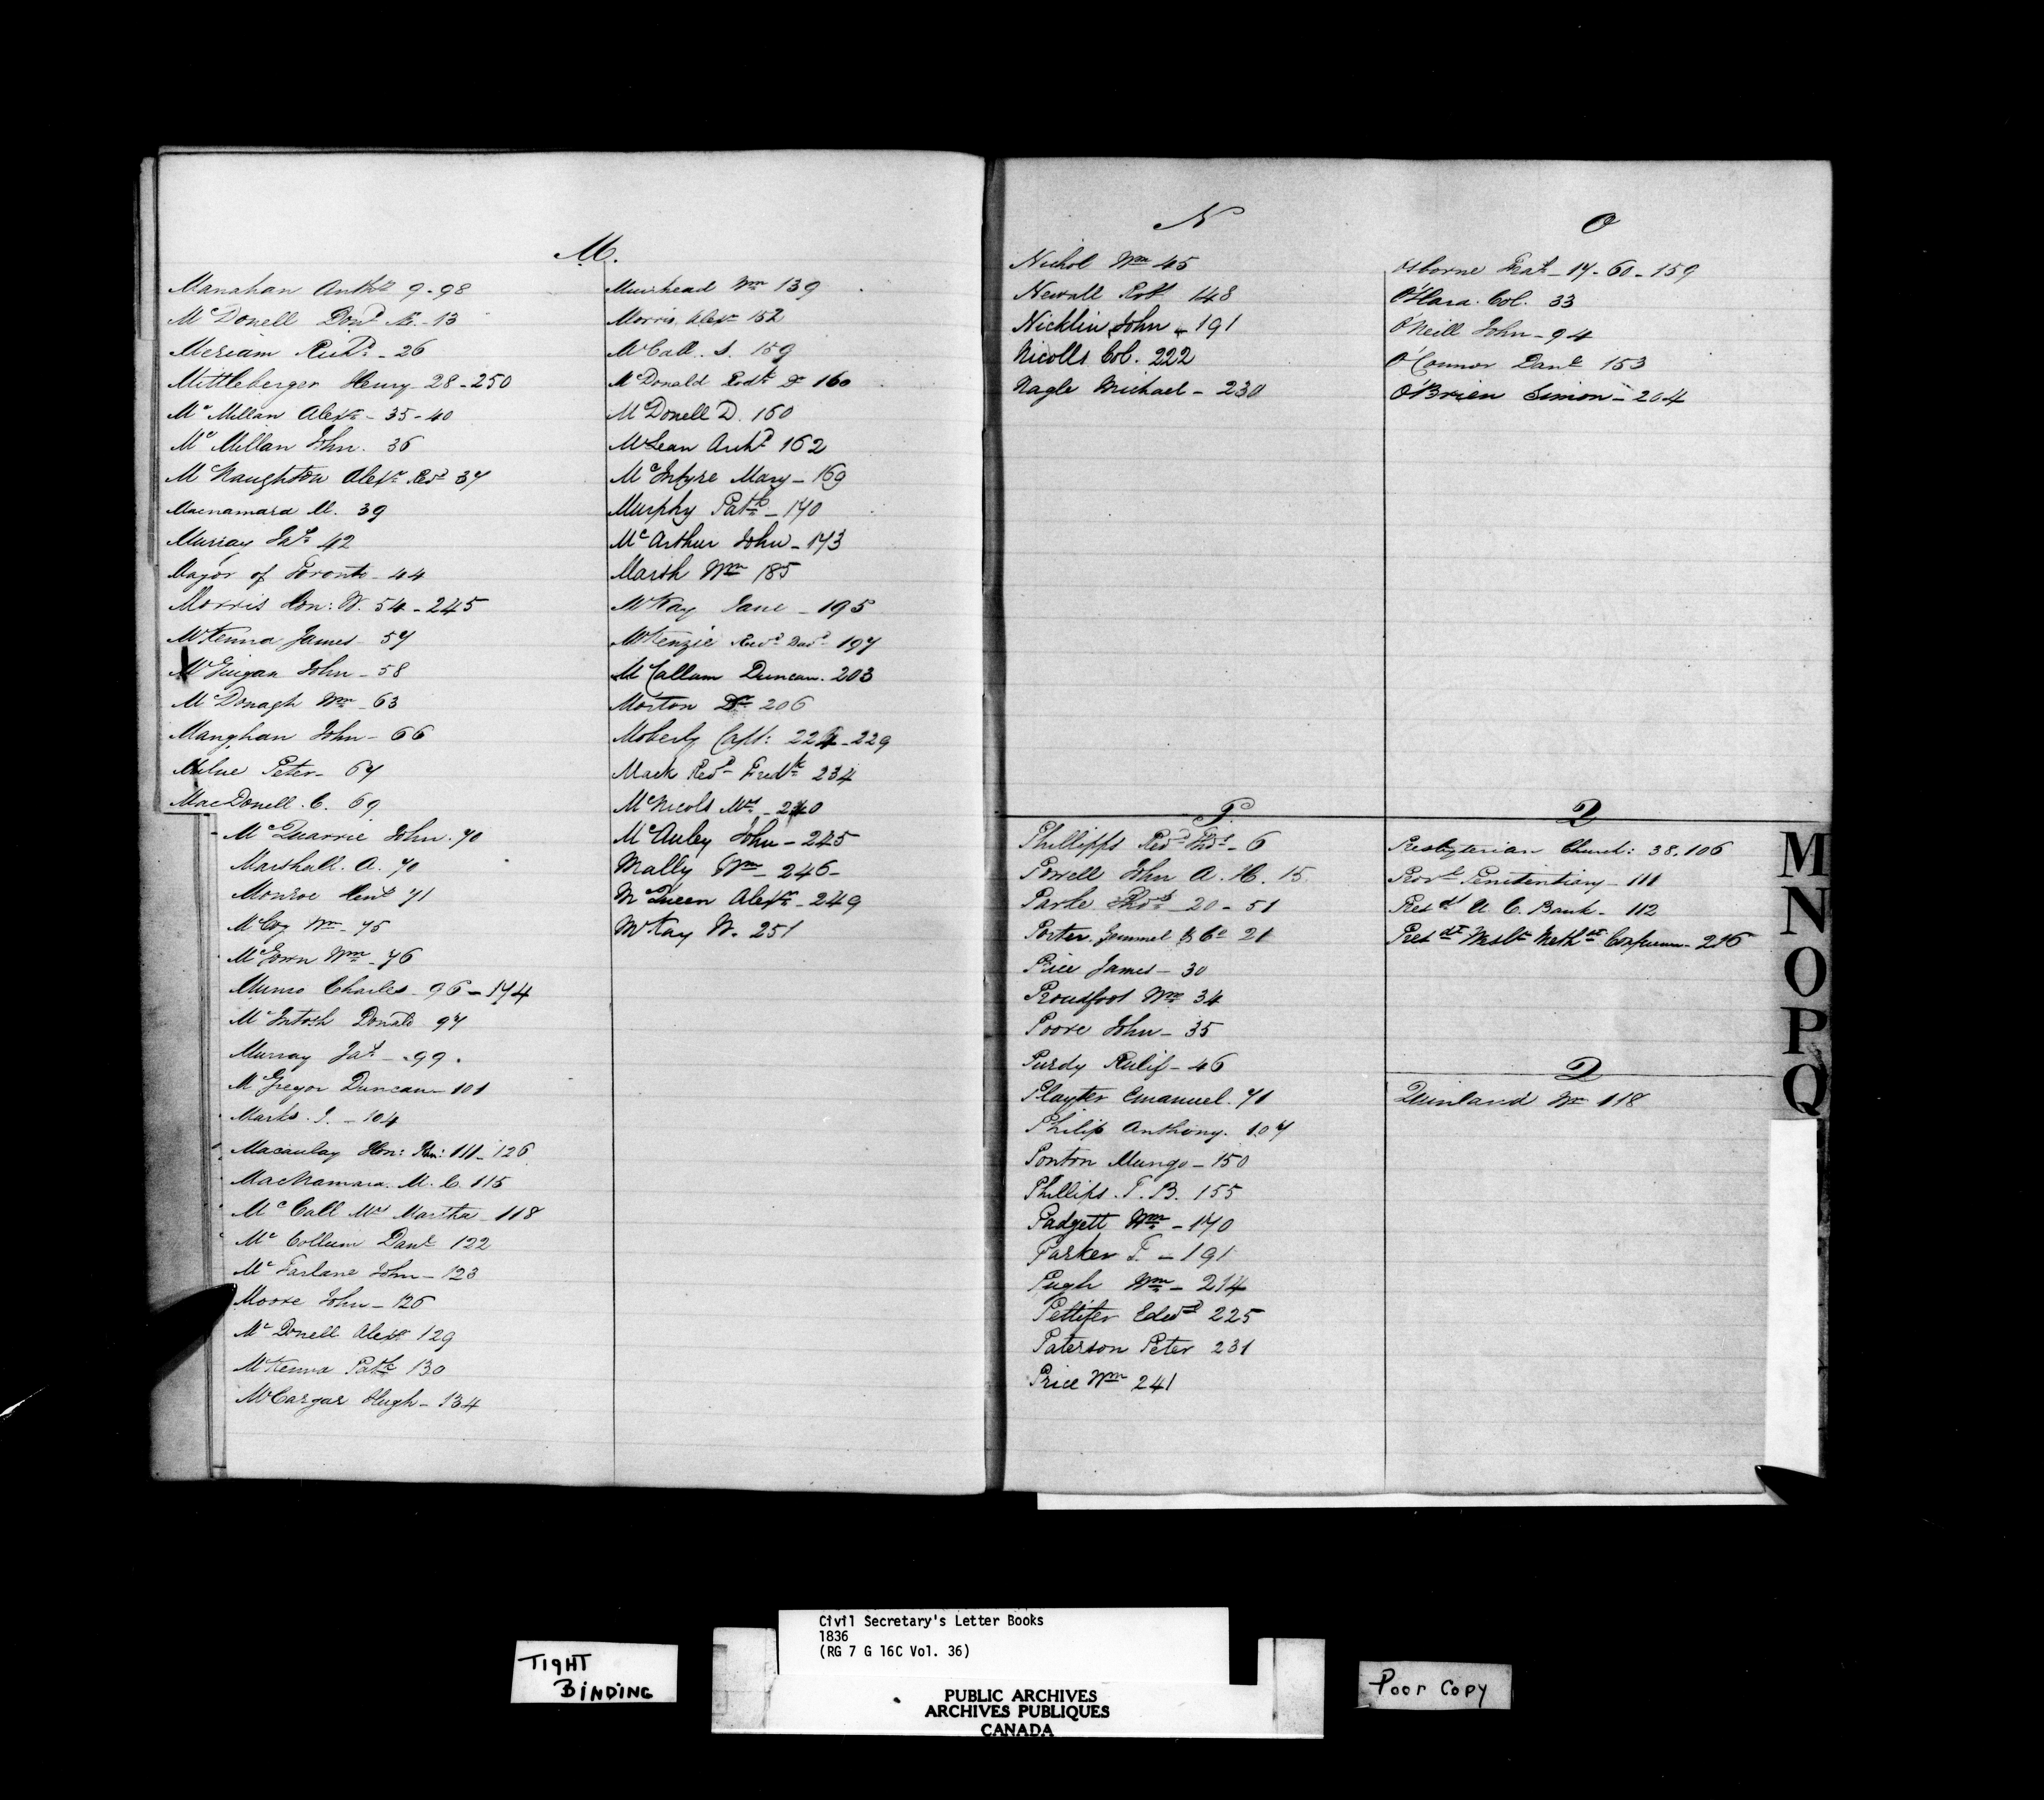 M.
Manahan Anthy 9-98
McDonell Dond Æ. - 13
Meriam Richd - 26
Mittleberger Henry 28-250
McMillan Alexr - 35-40
McMillan John. 36
McNaughton Alexr Revd 37
Macnamara M. 39
Murray Jas 42
Mayor of Toronto - 44
Morris Hon: W. 54-245
McKenna James - 57
McGuigan John - 58
McDonagh Wm - 63
Manghan John - 66
Milne Peter - 67
MacDonell. C. 69
McQuarrie John. 70
Marshall. A. 70
Monroe Lieut 71
McCoy Wm - 75
McGown Wm - 76
Munro Charles - 96-174
McIntosh Donald 97
Murray Jas - 99.
McGregor Duncan - 101
Marks. J. - 104
Macaulay Hon: Jhn: 111-126
MacNamara. M. C. 115
McCall Mrs Martha - 118
McCollum Danl 122
McFarlane John - 123
Moore John - 126
McDonell Alexr 129
McKenna Patk 130
McCargar Hugh - 134
Muirhead Wm 139
Morris Alexr 152
McCall. S. 159
McDonald Rodk Dr 160
McDonell D. 160
McLean Archd 162
McIntyre Mary - 169
Murphy Patk - 170
McArthur John - 173
Marsh Wm 185
McKay Jane - 195
McKenzie Revd Davd 197
McCallum Duncan. 203
Morton Dr 206
Moberly Capt: 224-229
Mack Revd Fredk 234
McNicols Mrs - 240
McAuley John - 245
Mally Wm - 246-
McQueen Alexr - 249
McKay W. 251
N
Nichol Wm 45
Newall Robt 148
Nicklin John - 191
Nicolls Col. 222
Nagle Michael - 230
O
Osborne Nat - 17-60-159
O'Hara. Col. 33
O'Neill John - 94
O'Connor Danl 153
O'Brien Simon - 204
P.
Phillipps Revd Thos - 6
Powell John A. H. 15
Parke Thos 20-51
Porter Gemmel & Co 21
Price James - 30
Proudfoot Wm 34
Poore John - 35
Purdy Rulif - 46
Playter Emanuel. 71
Philip Anthony. 107
Ponton Mungo - 150
Phillips. T. B. 155
Padgett Wm - 170
Parker T. - 191
Pugh Wm - 214
Pettifer Edwd 225
Paterson Peter 231
Price Wm 241
Presbyterian Church: 38.106
Provl Penitentiary - 111
Presdt U. C. Bank - 112
Presdt Wesln Methdt Conference - 216
Q
Quinland Wm 118
M
N
O
P
Q
TIGHT
BINDING
Civil Secretary's Letter Books
1836
(RG 7 G 16C Vol. 36)
PUBLIC ARCHIVES
ARCHIVES PUBLIQUES
CANADA
Poor Copy